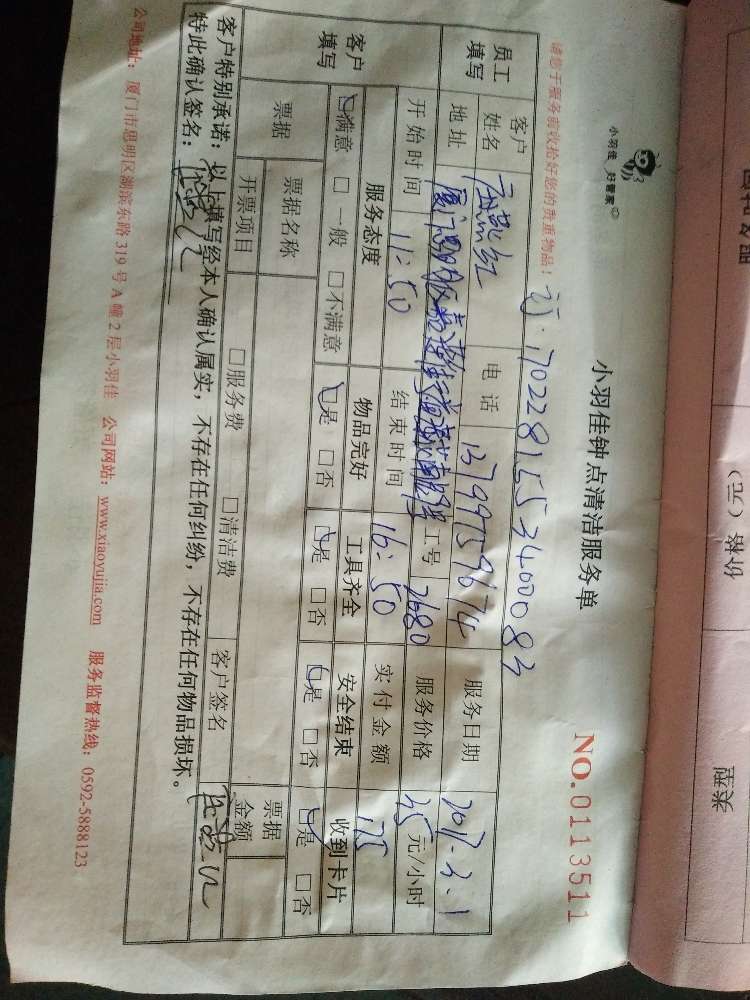 小羽佳 好管家
小羽佳钟点清洁服务单
NO.0113511
请您于服务前收拾好您的贵重物品!
订:1702281553400083
员工填写
客户姓名 燕红 电话 13799759674 服务日期 2017-3-1
地址 厦门思明区 工号 7680 服务价格 35元/小时
开始时间 11:50 结束时间 16:50 实付金额 175
客户填写
服务态度 物品完好 工具齐全 安全结束 收到卡片
☑满意 □一般 □不满意 ☑是 □否 ☑是 □否 ☑是 □否 ☑是 □否
票据 票据名称 票据金额
开票项目 □服务费 □清洁费 客户签名
客户特别承诺:以上填写经本人确认属实,不存在任何纠纷,不存在任何物品损坏。
特此确认签名:
公司地址:厦门市思明区湖滨东路319号A幢2层小羽佳 公司网站:www.xiaoyujia.com 服务监督热线:0592-5888123